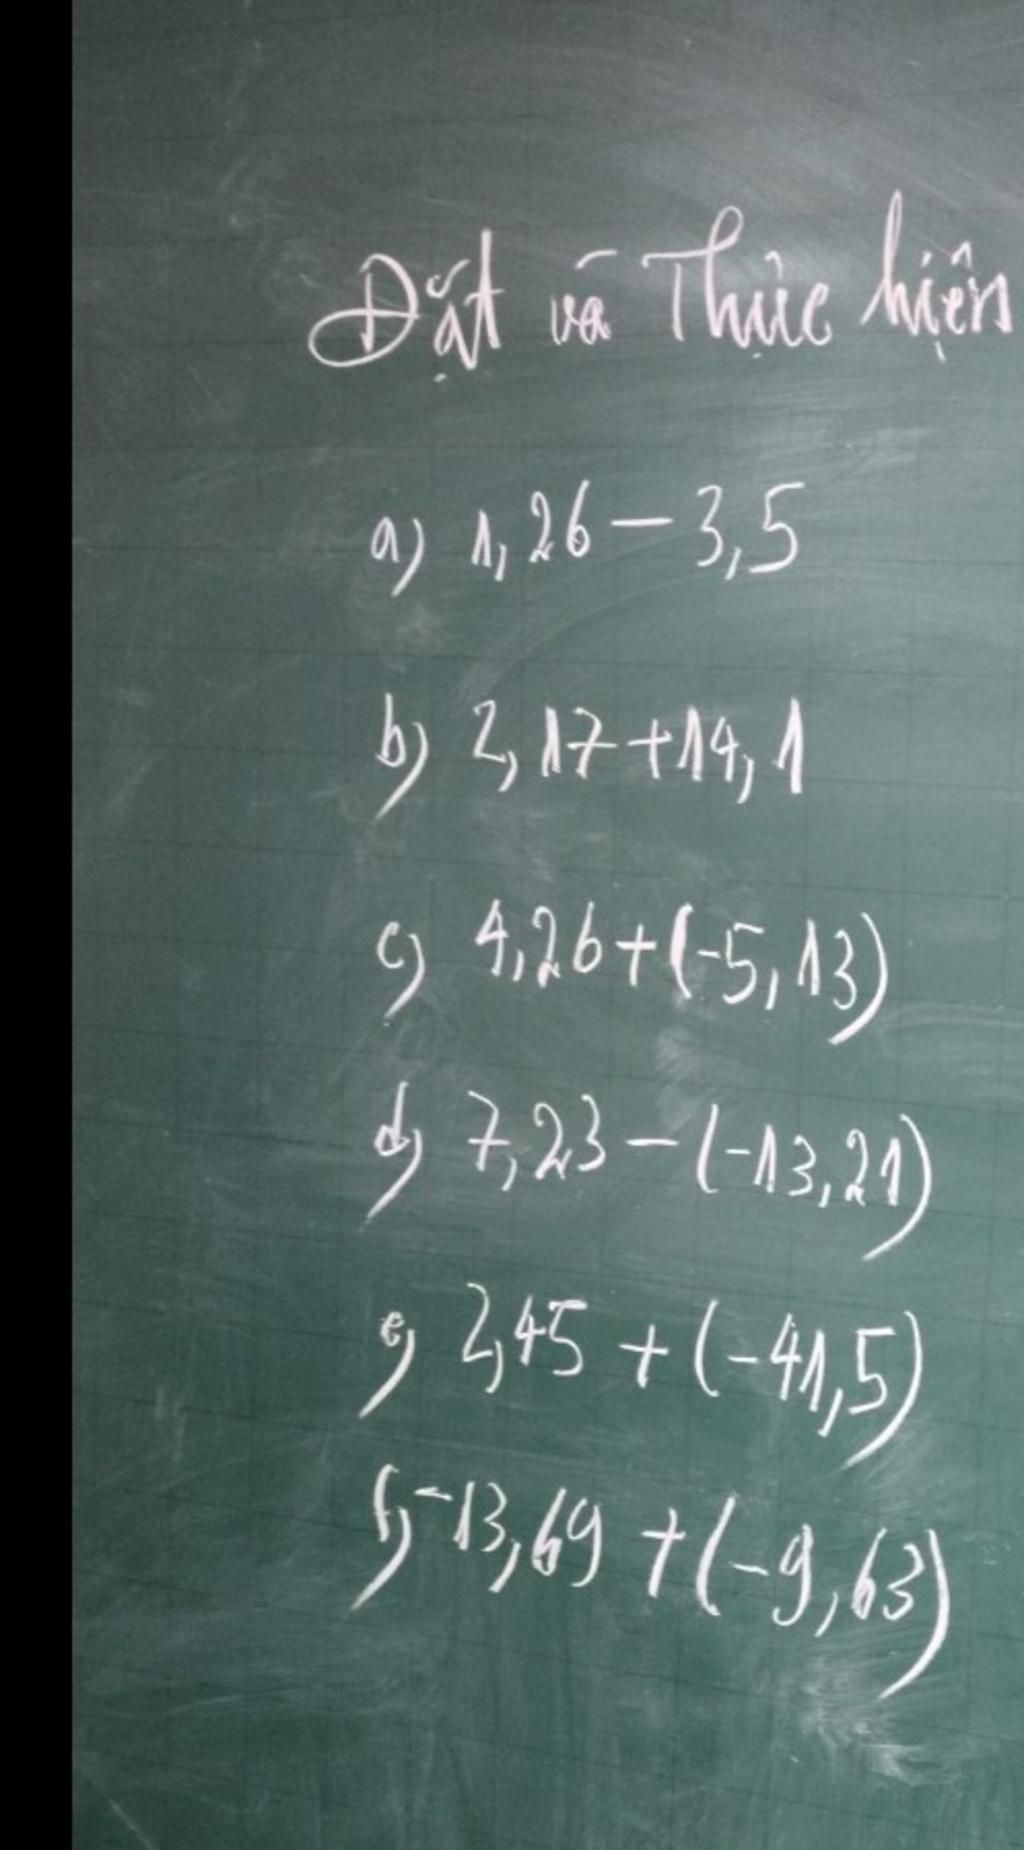 Đặt và Thực hiện
a) 1,26 - 3,5
b) 2,17 + 14,1
c) 4,26 + (-5,13)
d) 7,23 - (-13,21)
e) 2,45 + (-41,5)
f) -13,69 + (-9,63)